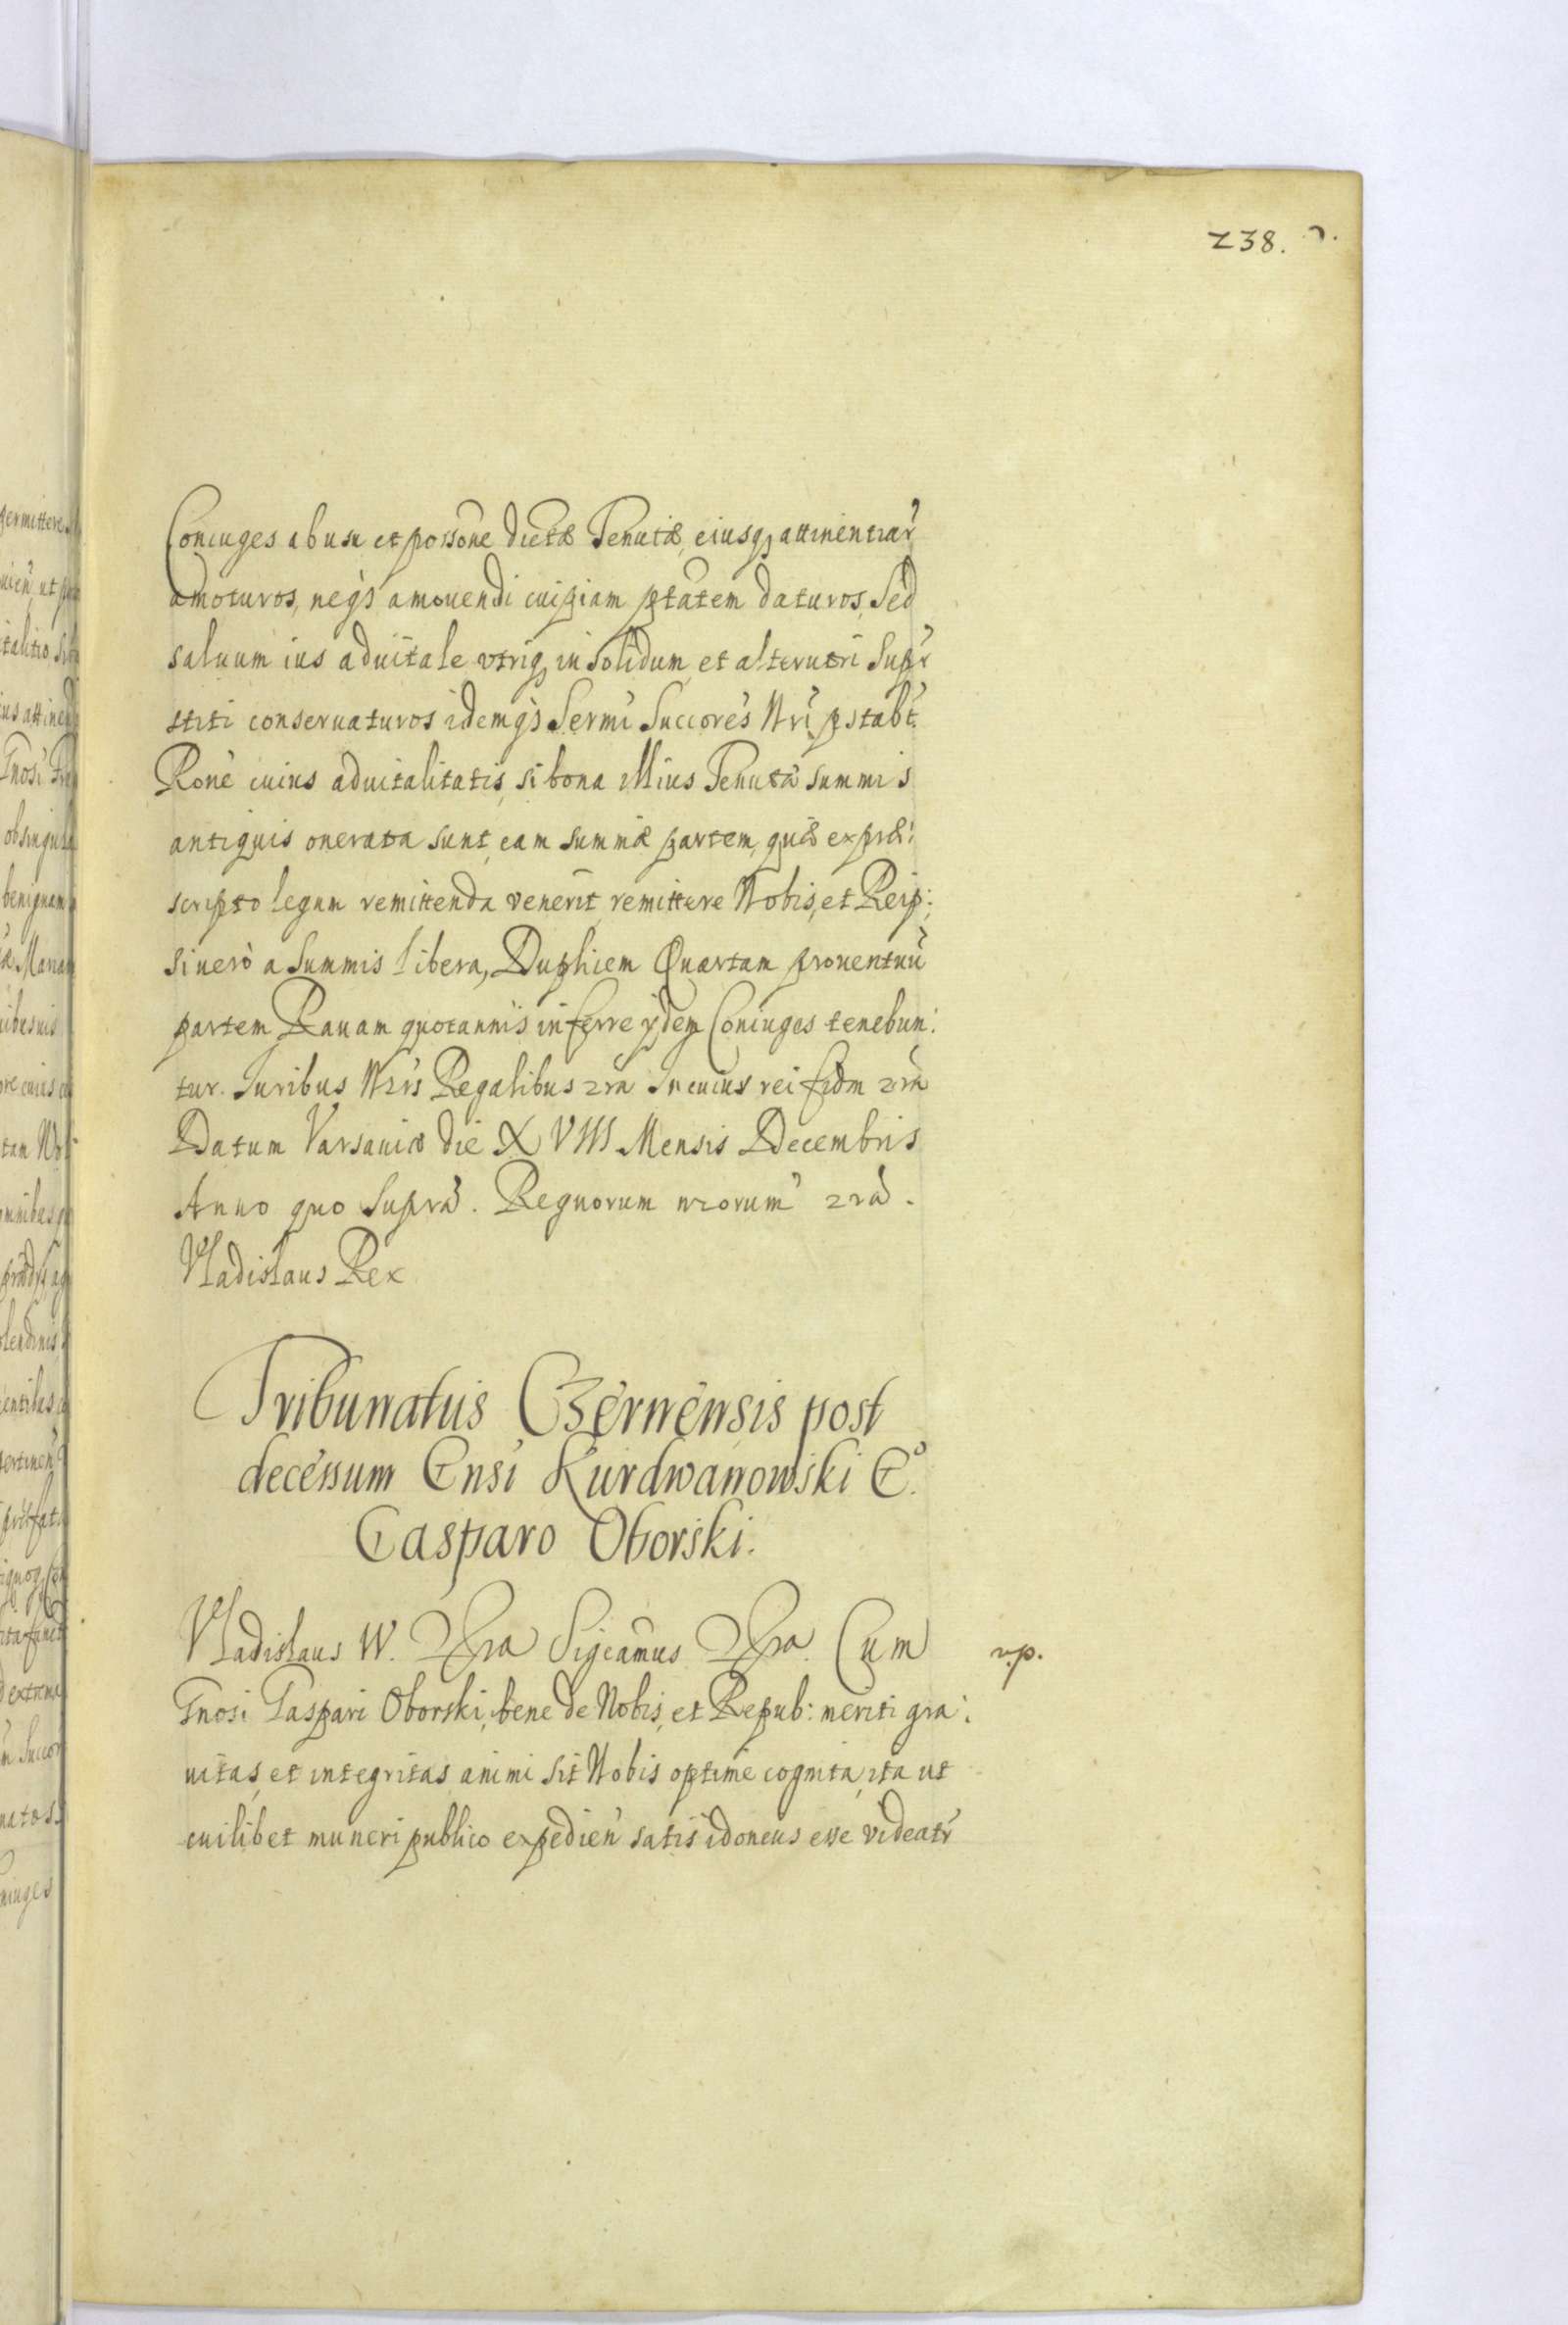 238.
Coniuges ab usu et possone dictæ Tenutæ, eiusq attinentiar
amoturos, neqs amouendi cuipiam ptatem daturos, Sed
saluum ius aduitale vtriq in solidum, et alterutri Supr
stiti conseruaturos idemqs Sermi Succores Nri pstabt.
Rone cuius aduitalitatis, si bona illius Tenutæ summis
antiquis onerata sunt, eam summæ partem, quæ ex præ:
scripto legum remittenda venerit, remittere Nobis, et Reip:;
si uerò a summis libera, Duplicem Quartam prouentuũ
partem Rauam quotannis inferre ydem Coniuges tenebun:
tur. Iuribus Nris Regalibus zra In cuius rei fidm zra
Datum Varsauiæ die XVIII Mensis Decembris
Anno quo Supra. Regnorum nrorum zra.
Vladislaus Rex
Tribunatus Czernensis post
decessum Gnsi Kurdwanowski Go.
Gasparo Oborski.
Vladislaus IV. Zra Sigcamus Zra. Cum
v.p.
Gnosi Gaspari Oborski, bene de Nobis, et Repub: meriti gra:
uitas, et integritas animi sit Nobis optime cognita, ita ut
cuilibet muneri publico expedien satis idoneus esse videatr